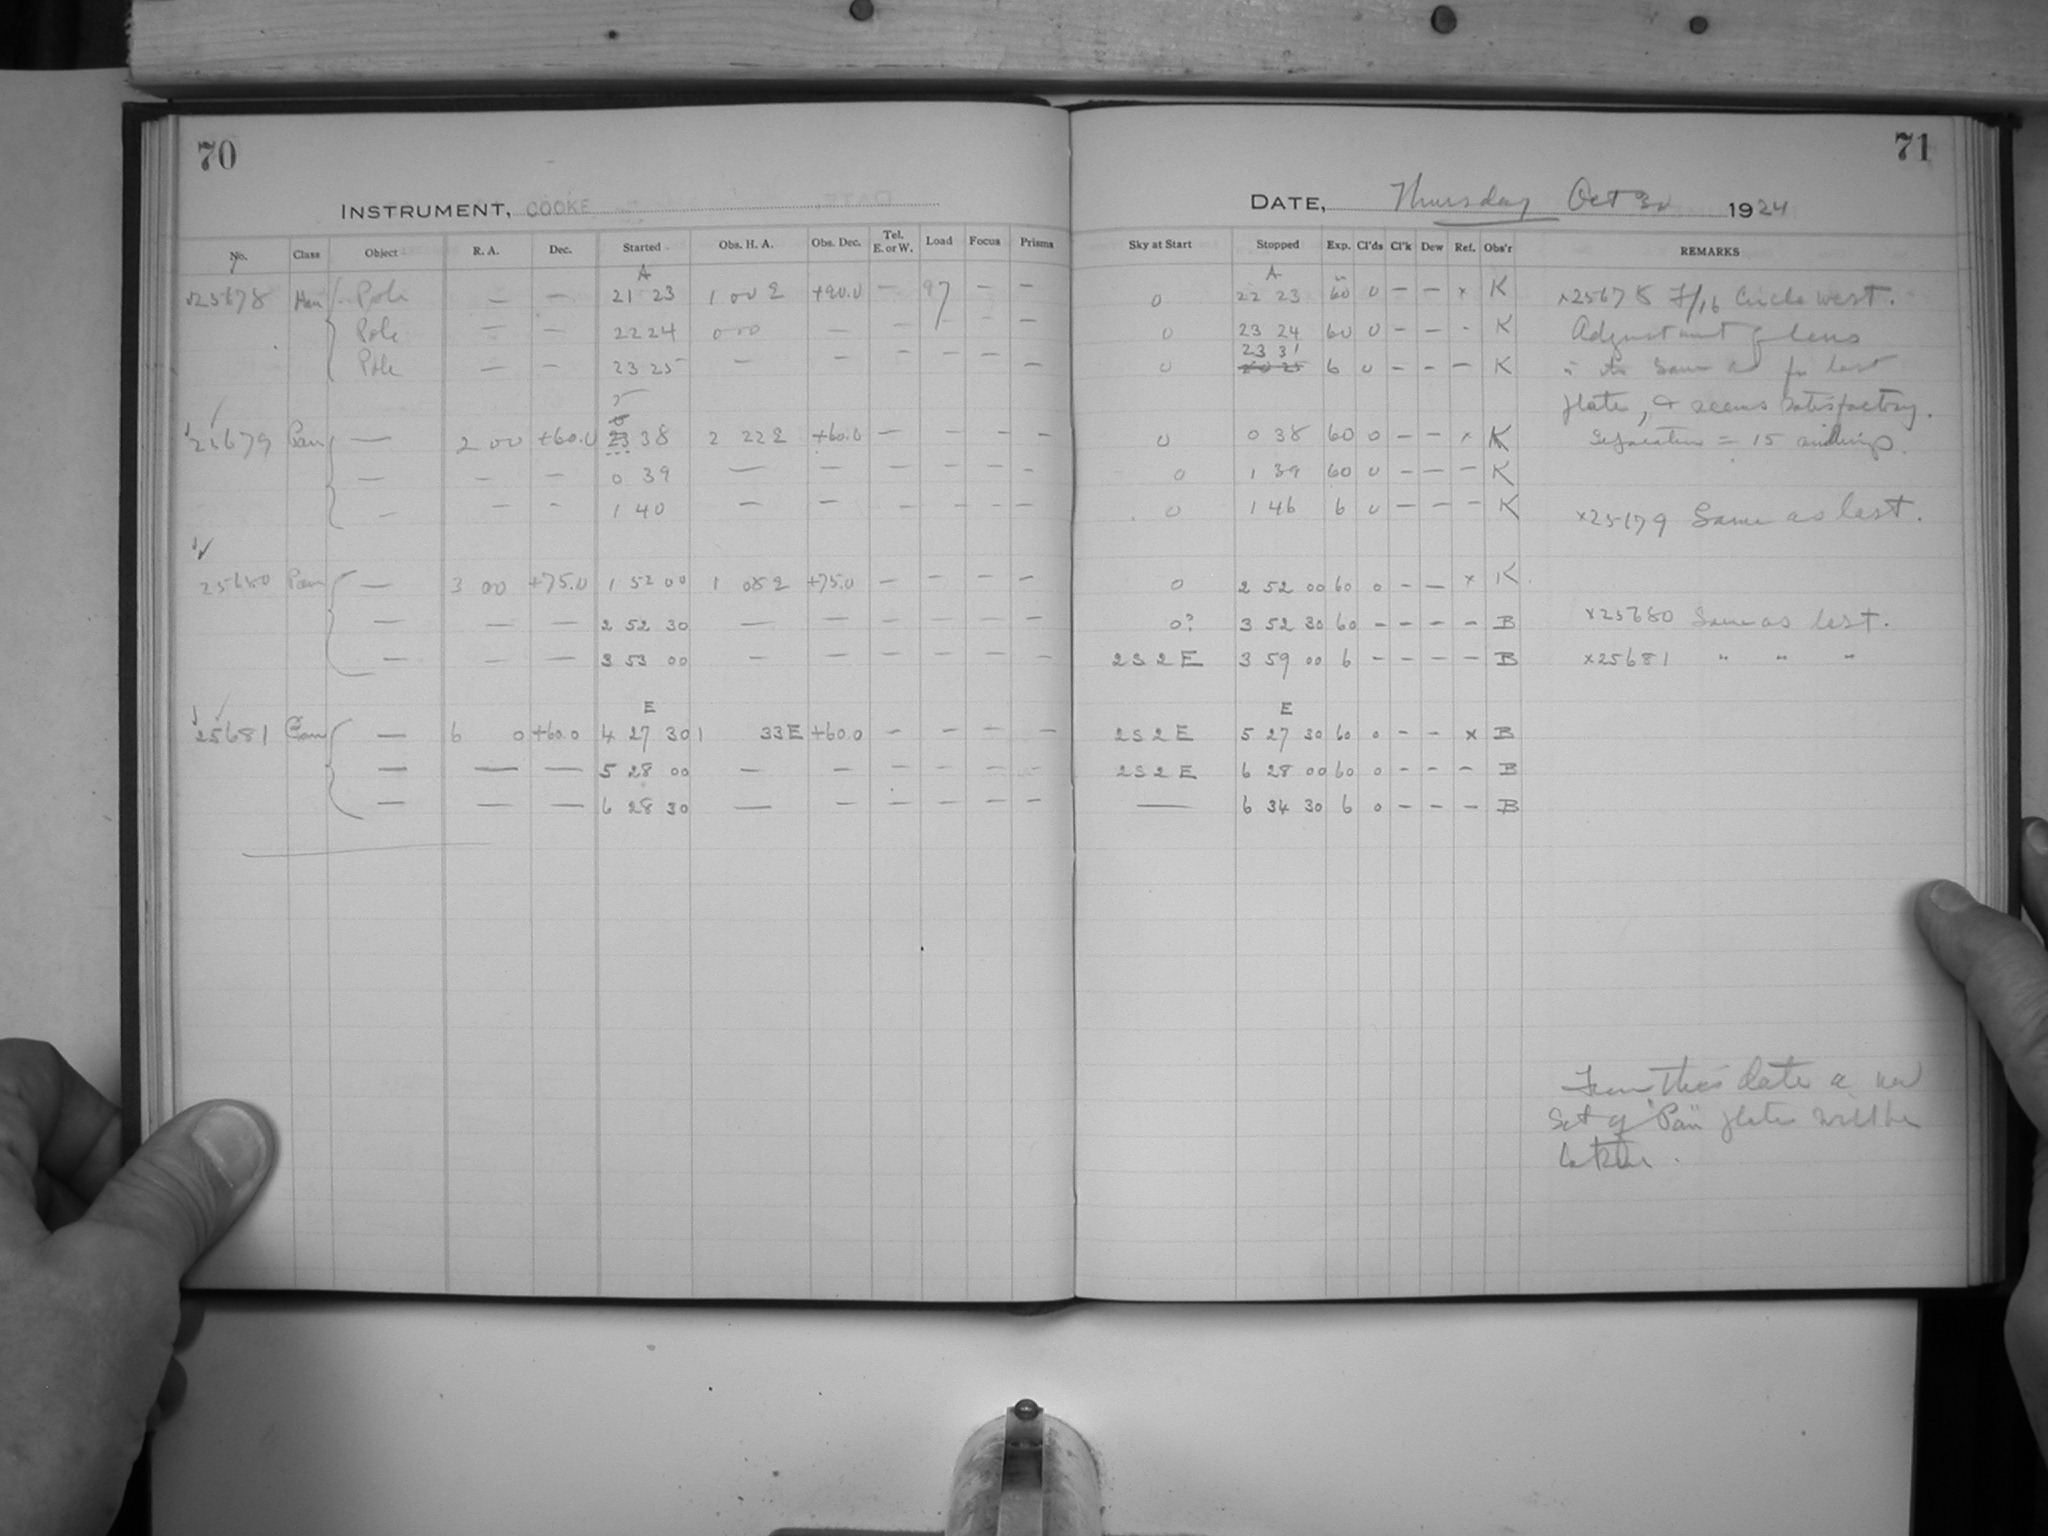 70
INSTRUMENT, COOKE
No. Class Object R. A. Dec. Started Obs. H. A. Obs. Dec. Tel. E. or W. Load Focus Prisms
A
25678 Pole — — 21 23 1 00 E +90.0 — 97 — —
Pole — — 22 24 0 00 — — — — —
Pole — — 23 25 — — — — — —
25679 Pan — 2 00 +60.0 23 38 2 22 E +60.0 — — — —
— — — 0 39 — — — — — —
— — — 1 40 — — — — — —
25680 Pan — 3 00 +75.0 1 52 00 1 08 E +75.0 — — — —
— — — 2 52 30 — — — — — —
— — — 3 53 00 — — — — — —
E
25681 Pan — 6 0 +60.0 4 27 30 1 33 E +60.0 — — — —
— — — 5 28 00 — — — — — —
— — — 6 28 30 — — — — — —
71
DATE, Thursday Oct 30 1924
Sky at Start Stopped Exp. Cl'ds Cl'k Dew Ref. Obs'r REMARKS
A
0 22 23 60 0 — — x K x25678 F/16 Circle west.
0 23 24 60 0 — — - K Adjustment of lens
23 31
0 6 0 — — — K is the same as for last
plate, & seems satisfactory.
0 0 38 60 0 — — x K Separation = 15
0 1 39 60 0 — — — K
0 1 46 6 0 — — — K x25679 Same as last.
0 2 52 00 60 0 — — x K
0? 3 52 30 60 — — — — B x25680 Same as last.
2 S 2 E 3 59 00 6 — — — — B x25681 " " "
E
2 S 2 E 5 27 30 60 0 — — x B
2 S 2 E 6 28 00 60 0 — — — B
— 6 34 30 6 0 — — — B
From this date a new
Set of "Pan" plates will be
taken.